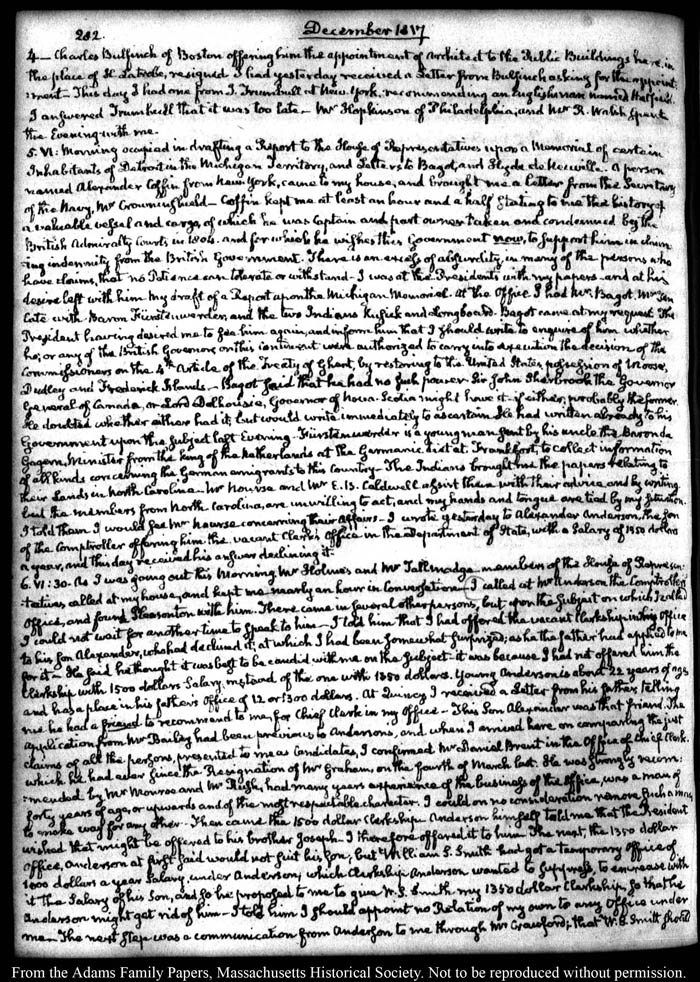 282.
December 1817
4— Charles Bulfinch of Boston offering him the appointment of Architect to the Public Buildings here, in
the place of H. Latrobe, resigned. I had yesterday received a Letter from Bulfinch asking for the appoint-
:ment— This day I had one from J. Trumbull at New York, recommending an Englishman named
I answered Trumbull that it was too late— Mr Hopkinson of Philadelphia, and Mr R. Walsh spent
the Evening with me.
5. VI: Morning occupied in drafting a Report to the House of Representatives upon a Memorial of certain
Inhabitants of Detroit in the Michigan Territory, and Letters to Bagot, and Hyde de Neuville. A person
named Alexander Coffin from New-York, came to my house, and brought me a letter from the Secretary
of the Navy, Mr Crowninshield— Coffin kept me at least an hour and a half stating to me the history of
a valuable vessel and cargo, of which he was Captain and part owner taken and condemned by the
British Admiralty Courts in 1804. and for which he wishes this Government now, to support him in claim-
ing indemnity from the British Government. There is an excess of absurdity, in many of the persons who
have claims, that no Patience can tolerate or withstand— I was at the President's with my papers— and at his
desire left with him my draft of a Report upon the Michigan Memorial. At the Office I had Mr. Bagot, Mr Ten
Cate with Baron Fürstenwerder, and the two Indians Kusick and Longboard. Bagot came at my request. The
President having desired me to see him again, and inform him that I should write to enquire of him whether
he, or any of the British Governors on this continent were authorized to carry into execution the decision of the
Commissioners on the 4th Article of the Treaty of Ghent, by restoring to the United States, possession of Moose,
Dudley and Frederick Islands— Bagot said that he had no such power. Sir John Sherbrook the Governor
General of Canada, or Lord Dalhousie, Governor of Nova-Scotia might have it— if either, probably the former.
He doubted whether either had it; but would write immediately to ascertain. He had written already to his
Government upon the subject last Evening— Fürstenwerder is a young man sent by his uncle the Baron de
Gagern, Minister from the King of the Netherlands at the Germanic diet at Frankfort, to collect information
of all kinds concerning the German emigrants to this Country— The Indians brought me the papers relating to
their lands in North Carolina— Mr Nourse and Mr E. B. Caldwell assist them with their advice and by writing
but the members from North Carolina, are unwilling to act, and my hands and tongue are tied by my situation.
I told them I would see Mr Nourse concerning their affairs— I wrote yesterday to Alexander Anderson, the Son
of the Comptroller offering him the vacant Clerk's Office in the Department of State, with a Salary of 1350 dollars
a year, and this day received his answer declining it.
6. VI: 30. As I was going out this Morning Mr Holmes and Mr Tallmadge, members of the House of Represen-
:tatives, called at my house, and kept me nearly an hour in Conversation. I called at Mr Anderson the Comptroller's
Office, and found Pleasonton with him. There came in several other persons, but upon the subject on which I called
I could not wait for another time to speak to him— I told him that I had offered the vacant Clerkship in my Office
to his Son Alexander, who had declined it; at which I had been somewhat surprized; as he the father had applied to me
for it— He said he thought it was best to be candid with me on the Subject— it was because I had not offered him the
Clerkship with 1500 dollars Salary, instead of the one with 1350 dollars. Young Anderson is about 22 years of age
and has a place in his father's Office of 12 or 1300 dollars. At Quincy I received a Letter from his father, telling
me he had a friend to recommend to me, for Chief Clerk in my Office— This Son Alexander was that friend. The
application from Mr Bailey had been previous to Anderson's, and when I arrived here on comparing the just
claims of all the persons, presented to me as Candidates, I confirmed Mr Daniel Brent in the Office of Chief Clerk.
which he had ever since the Resignation of Mr Graham, on the fourth of March last. He was strongly recom-
:mended by Mr Monroe and Mr Rush, had many years experience of the business of the office, was a man of
forty years of age, or upwards and of the most respectable character. I could on no consideration remove such a man,
to make way for any other. Then came the 1500 dollar Clerkship. Anderson himself told me that the President
wished that might be offered to his brother Joseph. I therefore offered it to him. The next, the 1350 dollar
Office, Anderson at first said would not suit his Son, but William S. Smith had got a temporary Office of
1000 dollars a year Salary, under Anderson, which Clerkship Anderson wanted to suppress, to encrease with
it the Salary of his Son, and so he proposed to me to give W. S. Smith my 1350 dollar Clerkship, so that he
Anderson might get rid of him— I told him I should appoint no Relation of my own to any Office under
me— The next step was a communication from Anderson to me through Mr Crawford; that W. S. Smith should
From the Adams Family Papers, Massachusetts Historical Society. Not to be reproduced without permission.